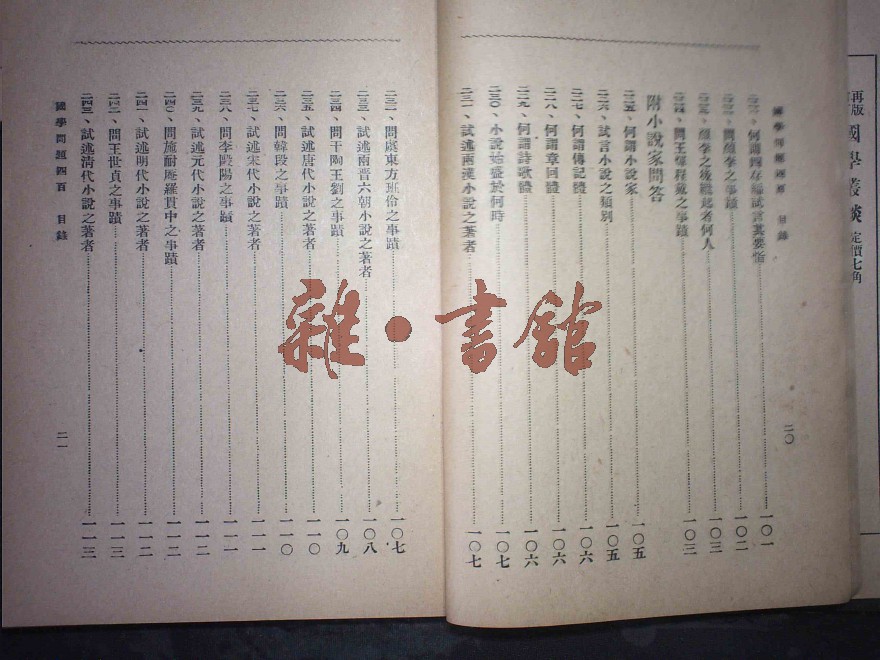 再版 國學叢談 定價七角
國學問題四百 目錄 二〇
二二一、何謂四存編試言其要恉……一〇一
二二二、問顏李之事蹟……一〇二
二二三、顏李之後繼起者何人……一〇三
二二四、問王程戴之事蹟……一〇三
附小說家問答
二二五、何謂小說家……一〇五
二二六、試言小說之類別……一〇五
二二七、何謂傳記體……一〇六
二二八、何謂章回體……一〇六
二二九、何謂詩歌體……一〇六
二三〇、小說始盛於何時……一〇七
二三一、試述兩漢小說之著者……一〇七
二三二、問虞東方班伶之事蹟……一〇七
二三三、試述兩晋六朝小說之著者……一〇八
二三四、問干陶王劉之事蹟……一〇九
二三五、試述唐代小說之著者……一一〇
二三六、問韓段之事蹟……一一〇
二三七、試述宋代小說之著者……一一一
二三八、問李歐陽之事蹟……一一一
二三九、試述元代小說之著者……一一二
二四〇、問施耐庵羅貫中之事蹟……一一二
二四一、試述明代小說之著者……一一二
二四二、問王世貞之事蹟……一一三
二四三、試述清代小說之著者……一一三
國學問題四百 目錄 二一
雜·書館